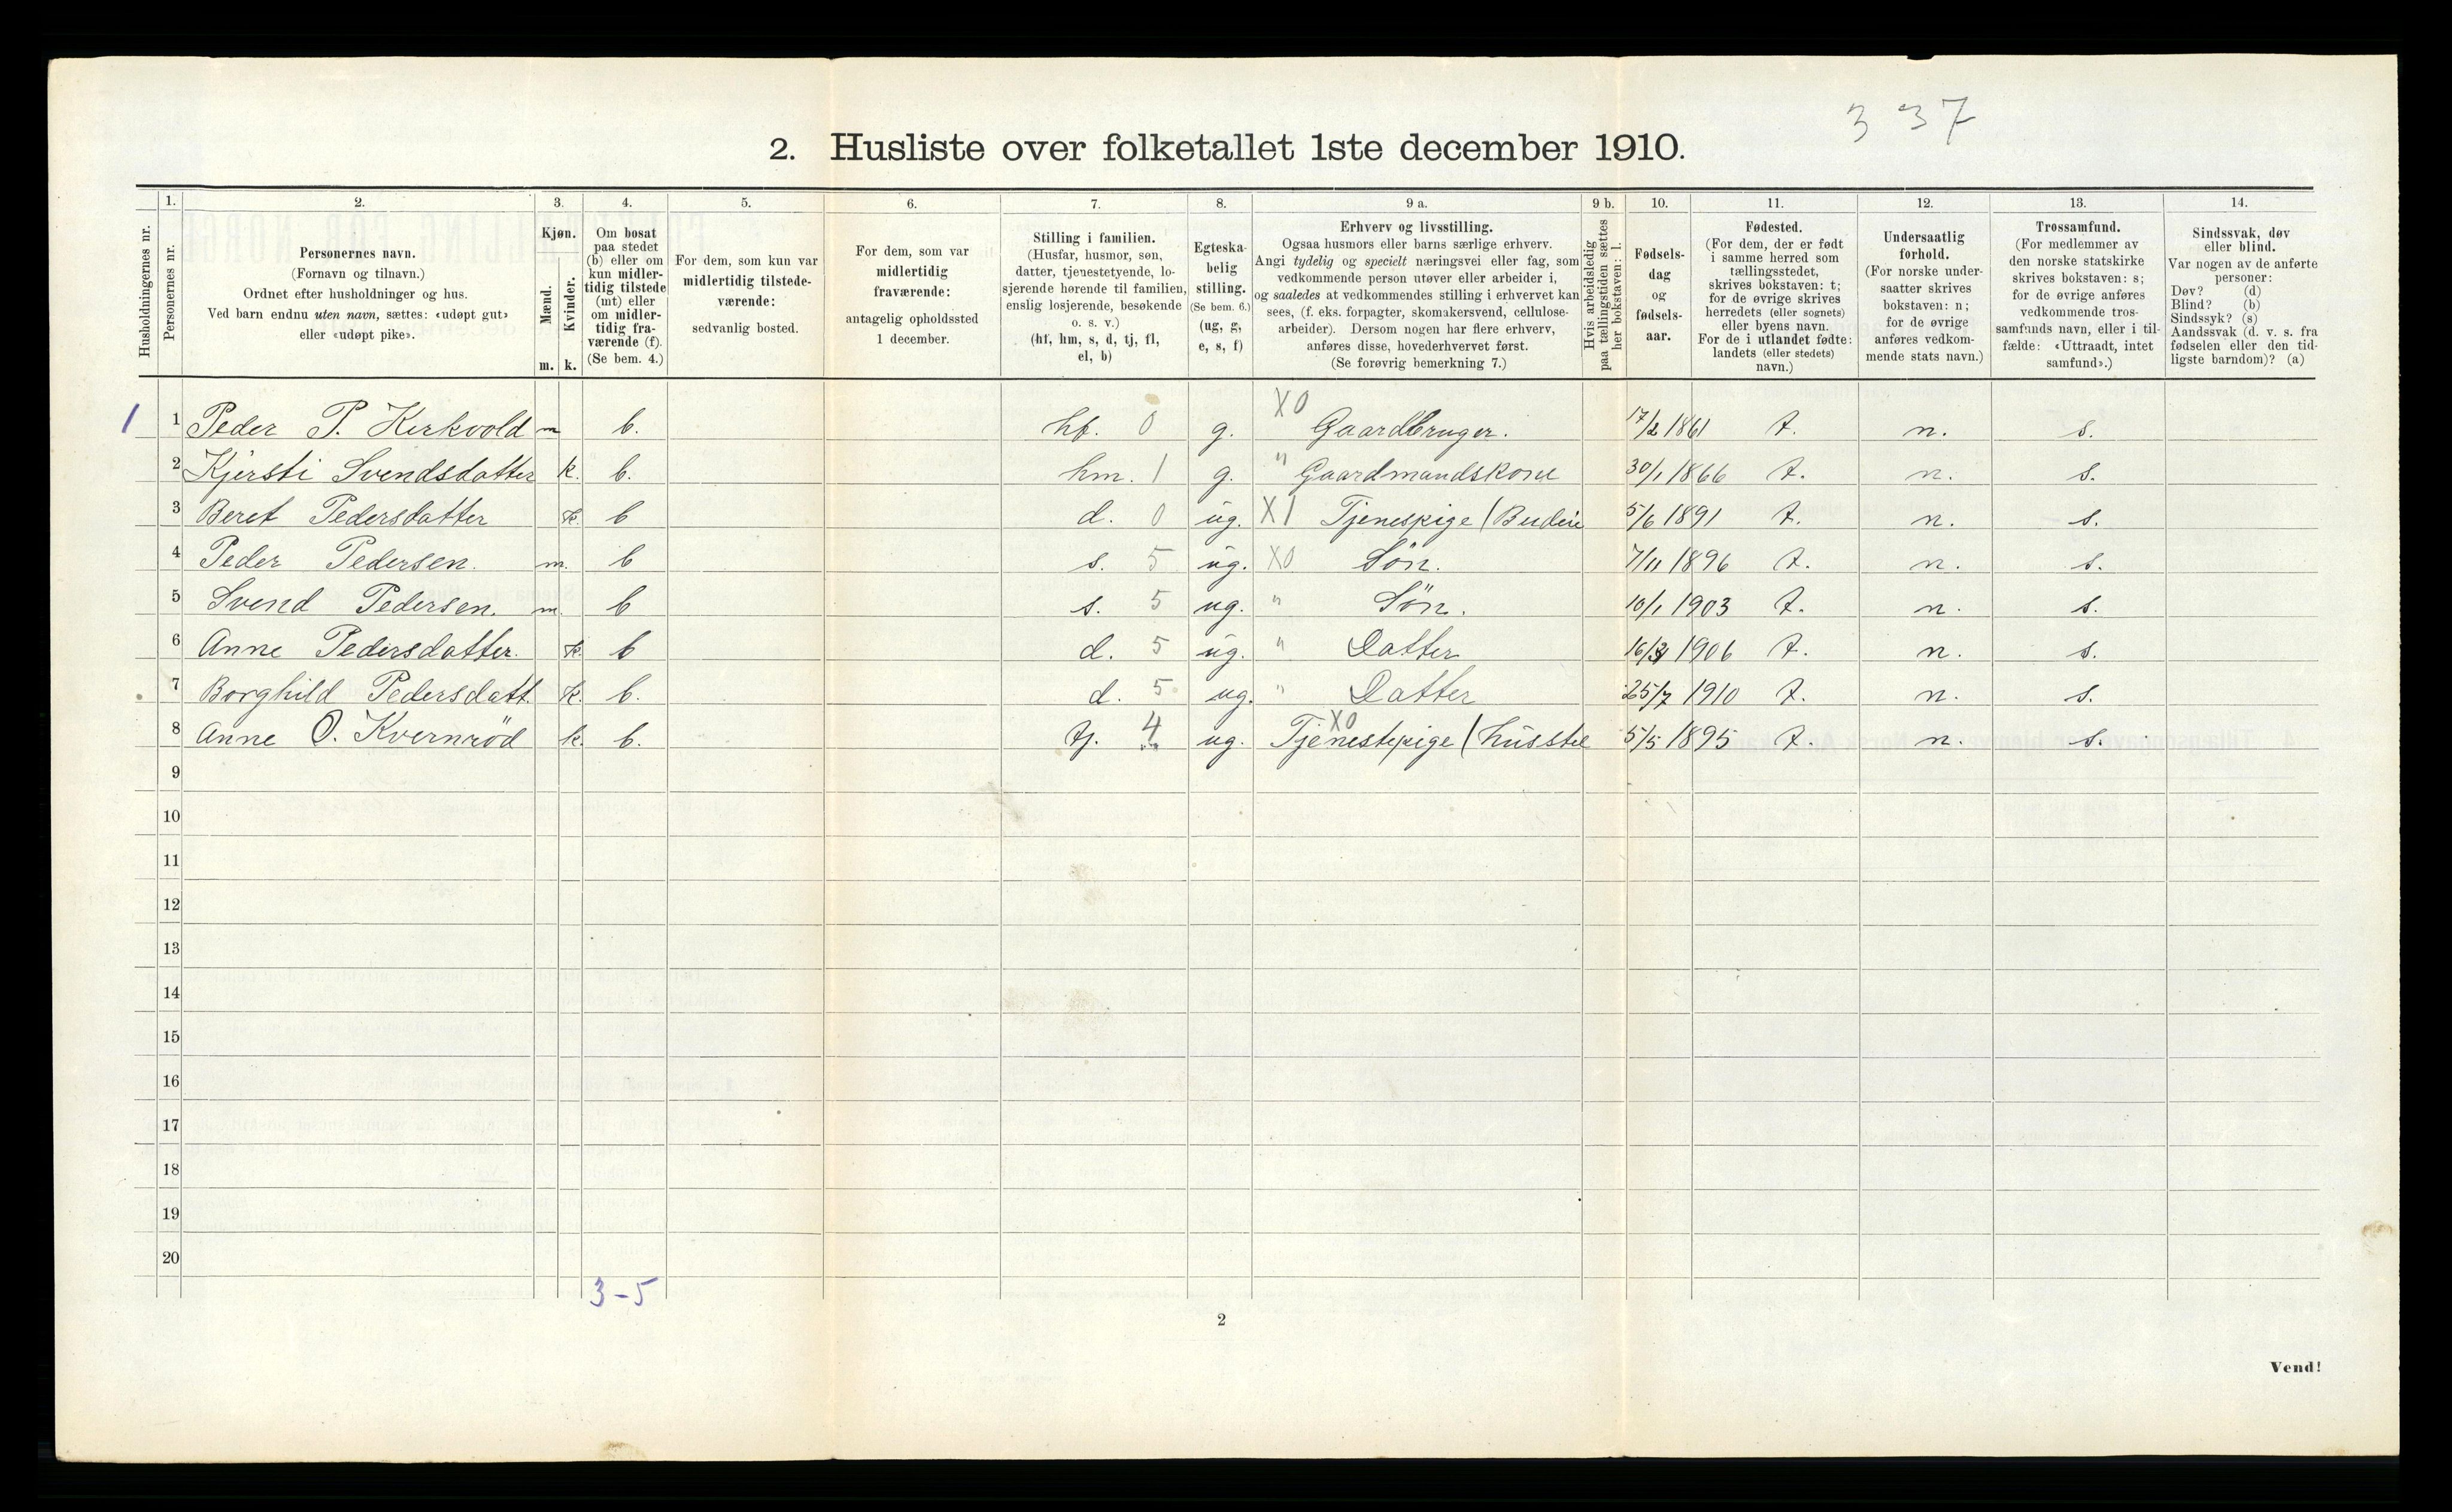 3 37
2. Husliste over folketallet 1ste december 1910.
Husholdningernes nr.
1.
Personernes nr.
2.
Personernes navn.
(Fornavn og tilnavn.)
Ordnet efter husholdninger og hus.
Ved barn endnu uten navn, sættes: «udøpt gut»
eller «udøpt pike».
3.
Kjøn.
Mænd.
Kvinder.
m. k.
4.
Om bosat
paa stedet
(b) eller om
kun midler-
tidig tilstede
(mt) eller
om midler-
tidig fra-
værende (f).
(Se bem. 4.)
5.
For dem, som kun var
midlertidig tilstede-
værende:
sedvanlig bosted.
6.
For dem, som var
midlertidig
fraværende:
antagelig opholdssted
1 december.
7.
Stilling i familien.
(Husfar, husmor, søn,
datter, tjenestetyende, lo-
sjerende hørende til familien,
enslig losjerende, besøkende
o. s. v.)
(hf, hm, s, d, tj, fl,
el, b)
8.
Egteska-
belig
stilling.
(Se bem. 6.)
(ug, g,
e, s, f)
9 a.
Erhverv og livsstilling.
Ogsaa husmors eller barns særlige erhverv.
Angi tydelig og specielt næringsvei eller fag, som
vedkommende person utøver eller arbeider i,
og saaledes at vedkommendes stilling i erhvervet kan
sees, (f. eks. forpagter, skomakersvend, cellulose-
arbeider). Dersom nogen har flere erhverv,
anføres disse, hovederhvervet først.
(Se forøvrig bemerkning 7.)
9 b.
Hvis arbeidsledig
paa tællingstiden sættes
her bokstaven: l.
10.
Fødsels-
dag
og
fødsels-
aar.
11.
Fødested.
(For dem, der er født
i samme herred som
tællingsstedet,
skrives bokstaven: t;
for de øvrige skrives
herredets (eller sognets)
eller byens navn.
For de i utlandet fødte:
landets (eller stedets)
navn.)
12.
Undersaatlig
forhold.
(For norske under-
saatter skrives
bokstaven: n;
for de øvrige
anføres vedkom-
mende stats navn.)
13.
Trossamfund.
(For medlemmer av
den norske statskirke
skrives bokstaven: s;
for de øvrige anføres
vedkommende tros-
samfunds navn, eller i til-
fælde: «Uttraadt, intet
samfund».)
14.
Sindssvak, døv
eller blind.
Var nogen av de anførte
personer:
Døv? (d)
Blind? (b)
Sindssyk? (s)
Aandssvak (d. v. s. fra
fødselen eller den tid-
ligste barndom)? (a)
1 1 Peder P. Kirkvold m b. hf. 0 g. X0 Gaardbruger. 17/2 1861 t. n. s.
2 Kjersti Svendsdatter k. b. hm. 1 g. " Gaardmandskone 30/1 1866 t. n. s.
3 Beret Pedersdatter k. b d. 0 ug. X1 Tjenespige (Budeie 5/6 1891 t. n. s.
4 Peder Pedersen. m. b s. 5 ug. X0 Søn. 7/11 1896 t. n. s.
5 Svend Pedersen. m. b s. 5 ug. " Søn. 10/1 1903 t. n. s.
6 Anne Pedersdatter. k. b d. 5 ug. " Datter 16/3 1906 t. n. s.
7 Borghild Pedersdatt. k. b. d. 5 ug. " Datter 25/7 1910 t. n. s.
8 Anne O. Kvernrød k. b. tj. 4 ug. X0 Tjenestepige (husstel 5/5 1895 t. n. s.
9
10
11
12
13
14
15
16
17
18
19
20
3-5
2
Vend!